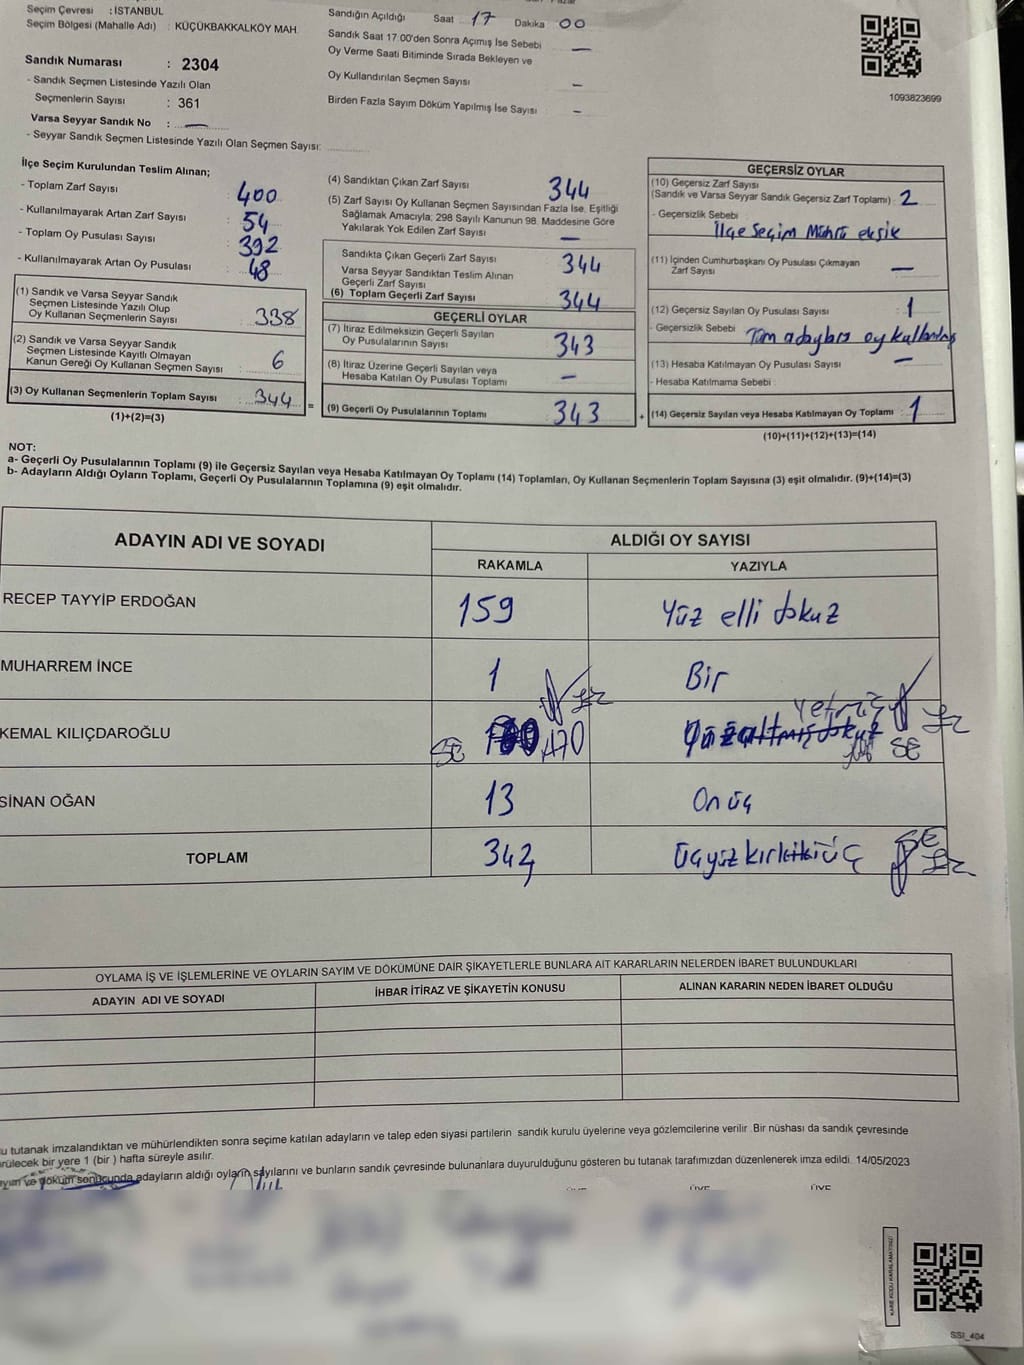 Seçim Çevresi : İSTANBUL
Seçim Bölgesi (Mahalle Adı) : KÜÇÜKBAKKALKÖY MAH.
Sandık Numarası : 2304
- Sandık Seçmen Listesinde Yazılı Olan
Seçmenlerin Sayısı : 361
Varsa Seyyar Sandık No : —
- Seyyar Sandık Seçmen Listesinde Yazılı Olan Seçmen Sayısı:
Sandığın Açıldığı Saat 17 Dakika 00
Sandık Saat 17:00'den Sonra Açımış İse Sebebi —
Oy Verme Saati Bitiminde Sırada Bekleyen ve
Oy Kullandırılan Seçmen Sayısı –
Birden Fazla Sayım Döküm Yapılmış İse Sayısı –
1093823699
İlçe Seçim Kurulundan Teslim Alınan;
- Toplam Zarf Sayısı : 400
- Kullanılmayarak Artan Zarf Sayısı : 54
- Toplam Oy Pusulası Sayısı : 392
- Kullanılmayarak Artan Oy Pusulası : 48
(1) Sandık ve Varsa Seyyar Sandık
Seçmen Listesinde Yazılı Olup
Oy Kullanan Seçmenlerin Sayısı : 338
(2) Sandık ve Varsa Seyyar Sandık
Seçmen Listesinde Kayıtlı Olmayan
Kanun Gereği Oy Kullanan Seçmen Sayısı : 6
(3) Oy Kullanan Seçmenlerin Toplam Sayısı : 344 =
(1)+(2)=(3)
(4) Sandıktan Çıkan Zarf Sayısı 344
(5) Zarf Sayısı Oy Kullanan Seçmen Sayısından Fazla İse, Eşitliği
Sağlamak Amacıyla; 298 Sayılı Kanunun 98. Maddesine Göre
Yakılarak Yok Edilen Zarf Sayısı —
Sandıkta Çıkan Geçerli Zarf Sayısı 344
Varsa Seyyar Sandıktan Teslim Alınan
Geçerli Zarf Sayısı
(6) Toplam Geçerli Zarf Sayısı 344
GEÇERLİ OYLAR
(7) İtiraz Edilmeksizin Geçerli Sayılan
Oy Pusulalarının Sayısı 343
(8) İtiraz Üzerine Geçerli Sayılan veya
Hesaba Katılan Oy Pusulası Toplamı –
(9) Geçerli Oy Pusulalarının Toplamı 343 +
GEÇERSİZ OYLAR
(10) Geçersiz Zarf Sayısı
(Sandık ve Varsa Seyyar Sandık Geçersiz Zarf Toplamı) : 2
- Geçersizlik Sebebi :
İlçe Seçim Mührü eksik
(11) İçinden Cumhurbaşkanı Oy Pusulası Çıkmayan
Zarf Sayısı —
(12) Geçersiz Sayılan Oy Pusulası Sayısı : 1
- Geçersizlik Sebebi : Tüm adaylara oy kullanılmış
(13) Hesaba Katılmayan Oy Pusulası Sayısı : –
- Hesaba Katılmama Sebebi :
(14) Geçersiz Sayılan veya Hesaba Katılmayan Oy Toplamı : 1
(10)+(11)+(12)+(13)=(14)
NOT:
a- Geçerli Oy Pusulalarının Toplamı (9) ile Geçersiz Sayılan veya Hesaba Katılmayan Oy Toplamı (14) Toplamları, Oy Kullanan Seçmenlerin Toplam Sayısına (3) eşit olmalıdır. (9)+(14)=(3)
b- Adayların Aldığı Oyların Toplamı, Geçerli Oy Pusulalarının Toplamına (9) eşit olmalıdır.
ADAYIN ADI VE SOYADI ALDIĞI OY SAYISI
RAKAMLA YAZIYLA
RECEP TAYYİP ERDOĞAN 159 Yüz elli dokuz
MUHARREM İNCE 1 Bir
KEMAL KILIÇDAROĞLU SE 170 SE
SİNAN OĞAN 13 On üç
TOPLAM 343 SE
OYLAMA İŞ VE İŞLEMLERİNE VE OYLARIN SAYIM VE DÖKÜMÜNE DAİR ŞİKAYETLERLE BUNLARA AİT KARARLARIN NELERDEN İBARET BULUNDUKLARI
ADAYIN ADI VE SOYADI İHBAR İTİRAZ VE ŞİKAYETİN KONUSU ALINAN KARARIN NEDEN İBARET OLDUĞU
u tutanak imzalandıktan ve mühürlendikten sonra seçime katılan adayların ve talep eden siyasi partilerin sandık kurulu üyelerine veya gözlemcilerine verilir. Bir nüshası da sandık çevresinde
rülecek bir yere 1 (bir) hafta süreyle asılır.
ayım ve döküm sonucunda adayların aldığı oyların sayılarını ve bunların sandık çevresinde bulunanlara duyurulduğunu gösteren bu tutanak tarafımızdan düzenlenerek imza edildi. 14/05/2023
ÜYE ÜYE ÜYE
SSI_404